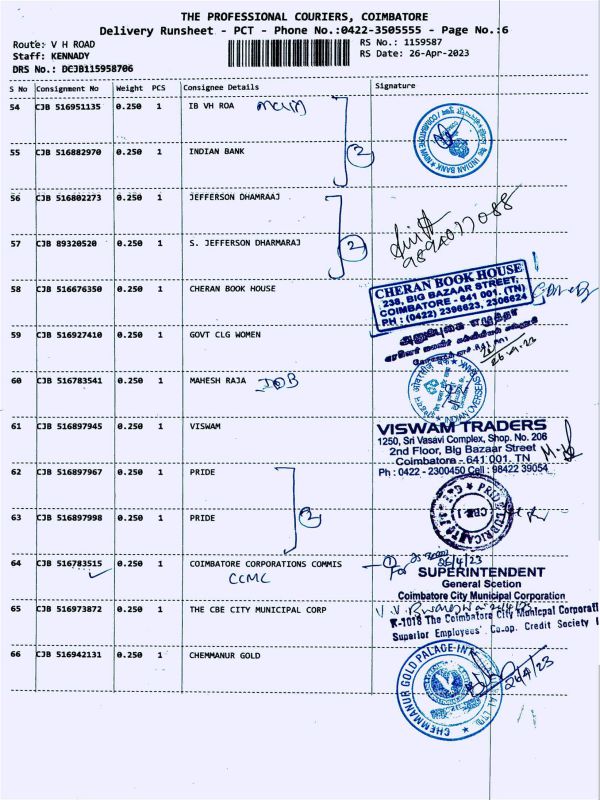 THE PROFESSIONAL COURIERS, COIMBATORE
Delivery Runsheet - PCT - Phone No.:0422-3505555 - Page No.:6
Route: V H ROAD
Staff: KENNADY
DRS No.: DCJB115958706
RS No.: 1159587
RS Date: 26-Apr-2023
S No Consignment No Weight PCS Consignee Details Signature
54 CJB 516951135 0.250 1 IB VH ROA
55 CJB 516882970 0.250 1 INDIAN BANK
2
INDIAN BANK
56 CJB 516802273 0.250 1 JEFFERSON DHAMRAAJ
57 CJB 89320520 0.250 1 S. JEFFERSON DHARMARAJ
2
58 CJB 516676350 0.250 1 CHERAN BOOK HOUSE
CHERAN BOOK HOUSE
238, BIG BAZAAR STREET,
COIMBATORE - 641 001. (TN)
PH : (0422) 2396623, 2306624
59 CJB 516927410 0.250 1 GOVT CLG WOMEN
60 CJB 516783541 0.250 1 MAHESH RAJA IOB
INDIAN OVERSEAS
61 CJB 516897945 0.250 1 VISWAM
VISWAM TRADERS
1250, Sri Vasavi Complex, Shop. No. 206
2nd Floor, Big Bazaar Street
Coimbatore - 641 001. TN
Ph : 0422 - 2300450 Cell : 98422 39054
62 CJB 516897967 0.250 1 PRIDE
63 CJB 516897998 0.250 1 PRIDE
2
PRIDE LUBRICANTS
CBE-1
64 CJB 516783515 0.250 1 COIMBATORE CORPORATIONS COMMIS
CCMC
1 For 26/4/23
SUPERINTENDENT
General Scetion
Coimbatore City Municipal Corporation
65 CJB 516973872 0.250 1 THE CBE CITY MUNICPAL CORP
K-1018 The Coimbatore City Municpal Corporati
Superior Employees' Co-op. Credit Society
66 CJB 516942131 0.250 1 CHEMMANUR GOLD
CHEMMANUR GOLD PALACE
26/4/23